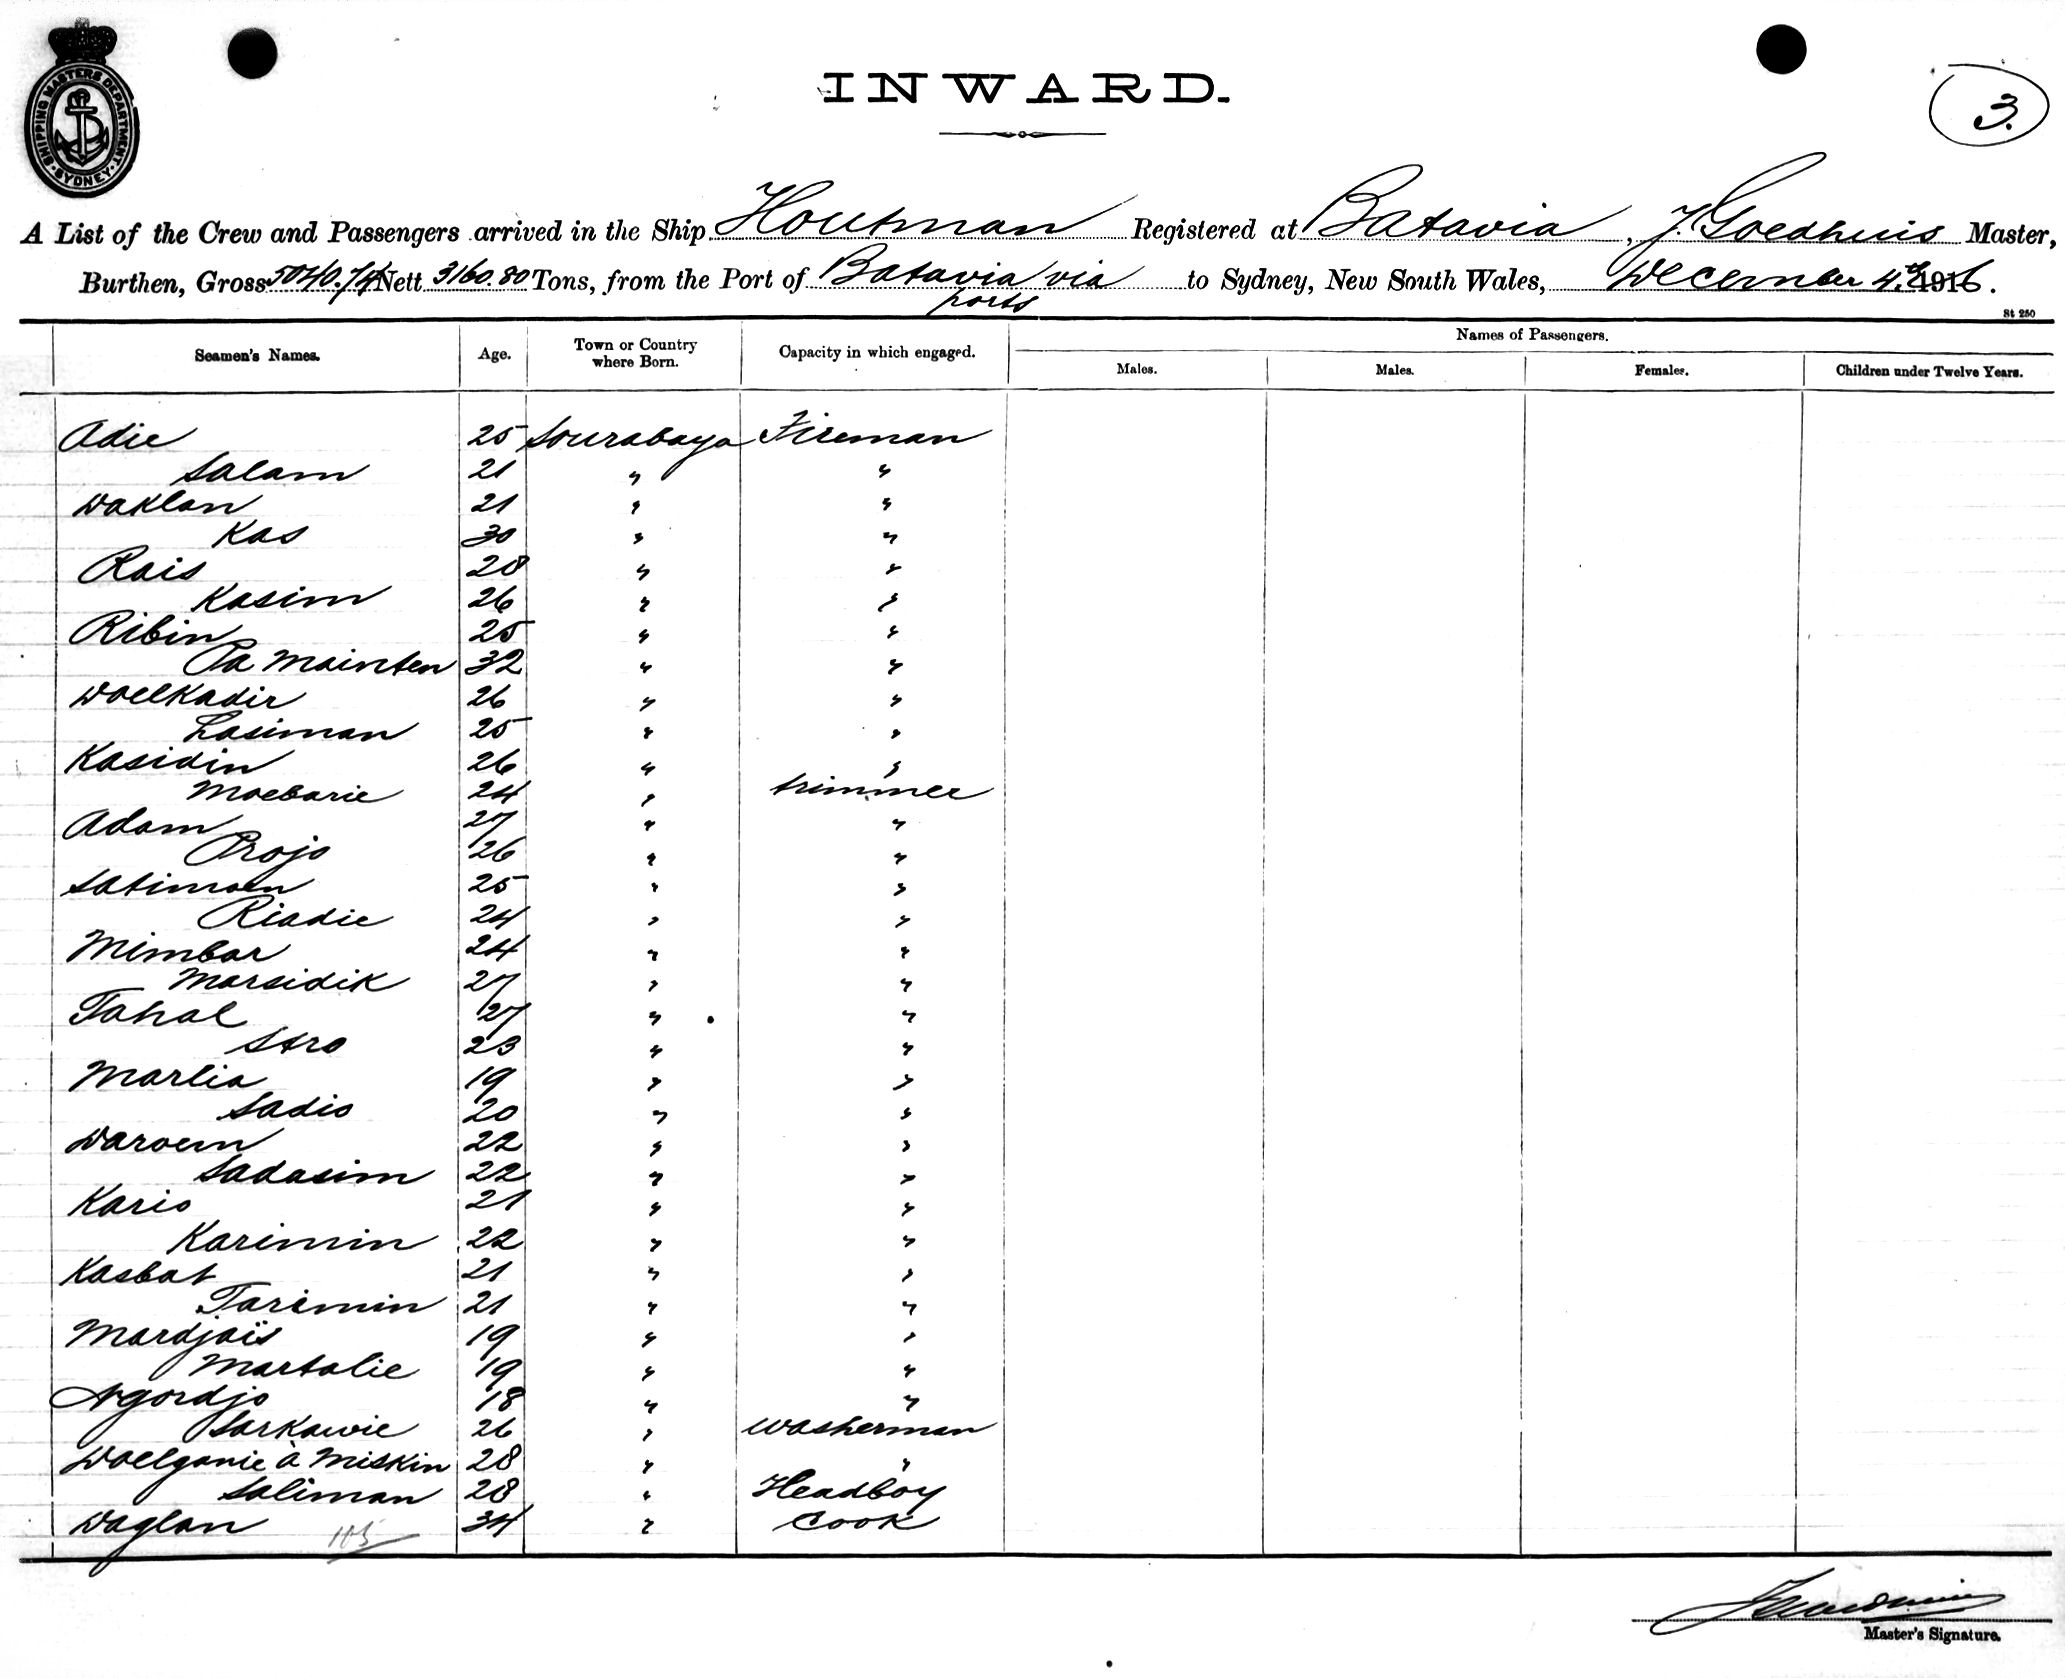 SHIPPING MASTERS DEPARTMENT
SYDNEY
INWARD.
3.
A List of the Crew and Passengers arrived in the Ship Houtman Registered at Batavia, J. Goedhuis Master,
Burthen, Gross 5040.74 Nett 3160.80 Tons, from the Port of Batavia via ports to Sydney, New South Wales, December 4th 1916.
St 250
Seamen's Names. Age. Town or Country where Born. Capacity in which engaged. Names of Passengers.
Males. Males. Females. Children under Twelve Years.
Adie 25 Sourabaya Fireman
Salam 21 " "
Waklan 21 " "
Kas 30 " "
Rais 28 " "
Kasim 26 " "
Ribin 25 " "
Pa Mainten 32 " "
Woelkadir 26 " "
Lasiman 25 " "
Kasidin 26 " "
Moebarie 24 " trimmer
Adam 27 " "
Projo 26 " "
Satimoen 25 " "
Riadie 24 " "
Mimbar 24 " "
Marsidik 27 " "
Tahal 27 " "
Stro 23 " "
Marlia 19 " "
Sadio 20 " "
Waroem 22 " "
Sadasim 22 " "
Kario 21 " "
Karimin 22 " "
Kasbat 21 " "
Tarimin 21 " "
Mardjaïs 19 " "
Martalie 19 " "
Ngordjo 18 " "
Sarkawie 26 " washerman
Woelganie à Miskin 28 " "
Saliman 28 " Headboy
Waglan 34 " Cook
Master's Signature.